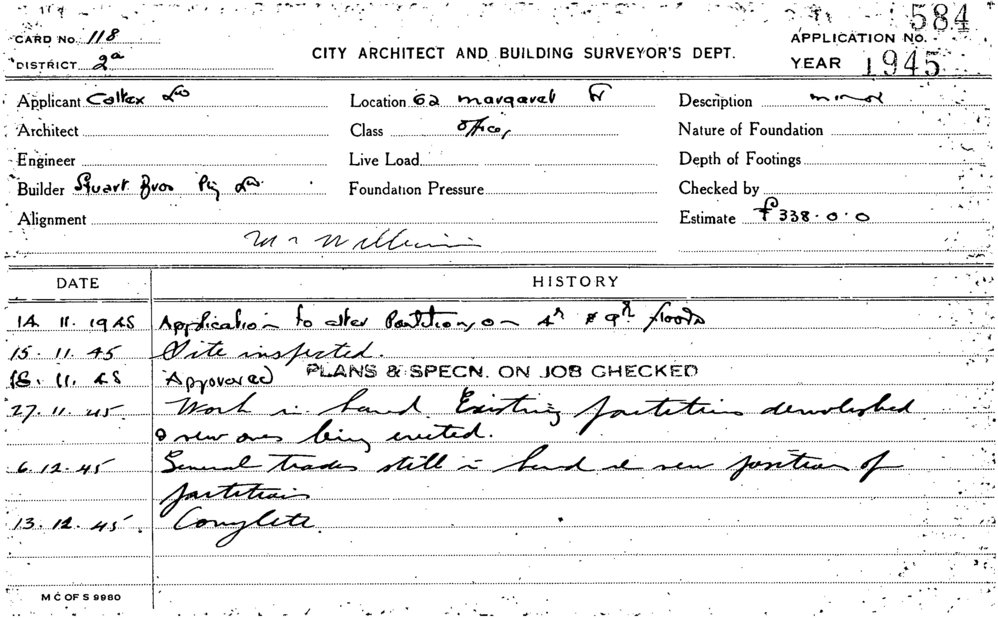 584
CARD No. 118
APPLICATION No.
CITY ARCHITECT AND BUILDING SURVEYOR'S DEPT.
DISTRICT 2a
YEAR 1945
Applicant Caltex Ld Location 62 Margaret St Description minor
Architect Class Office, Nature of Foundation
Engineer Live Load Depth of Footings
Builder Stuart Bros Pty Ld. Foundation Pressure Checked by
Alignment Estimate £338.0.0
Mr
DATE HISTORY
14 11. 1945 Application to alter Partitions, on 4th & 9th floors
15. 11. 45 Site inspected.
11. 45 Approved PLANS & SPECN. ON JOB CHECKED
27. 11. 45 Work in hand. Existing partitions demolished
& new ones being erected.
6. 12. 45 General trades still in hand & new position of
partitions
13. 12. 45 Complete
M C OF S 9980